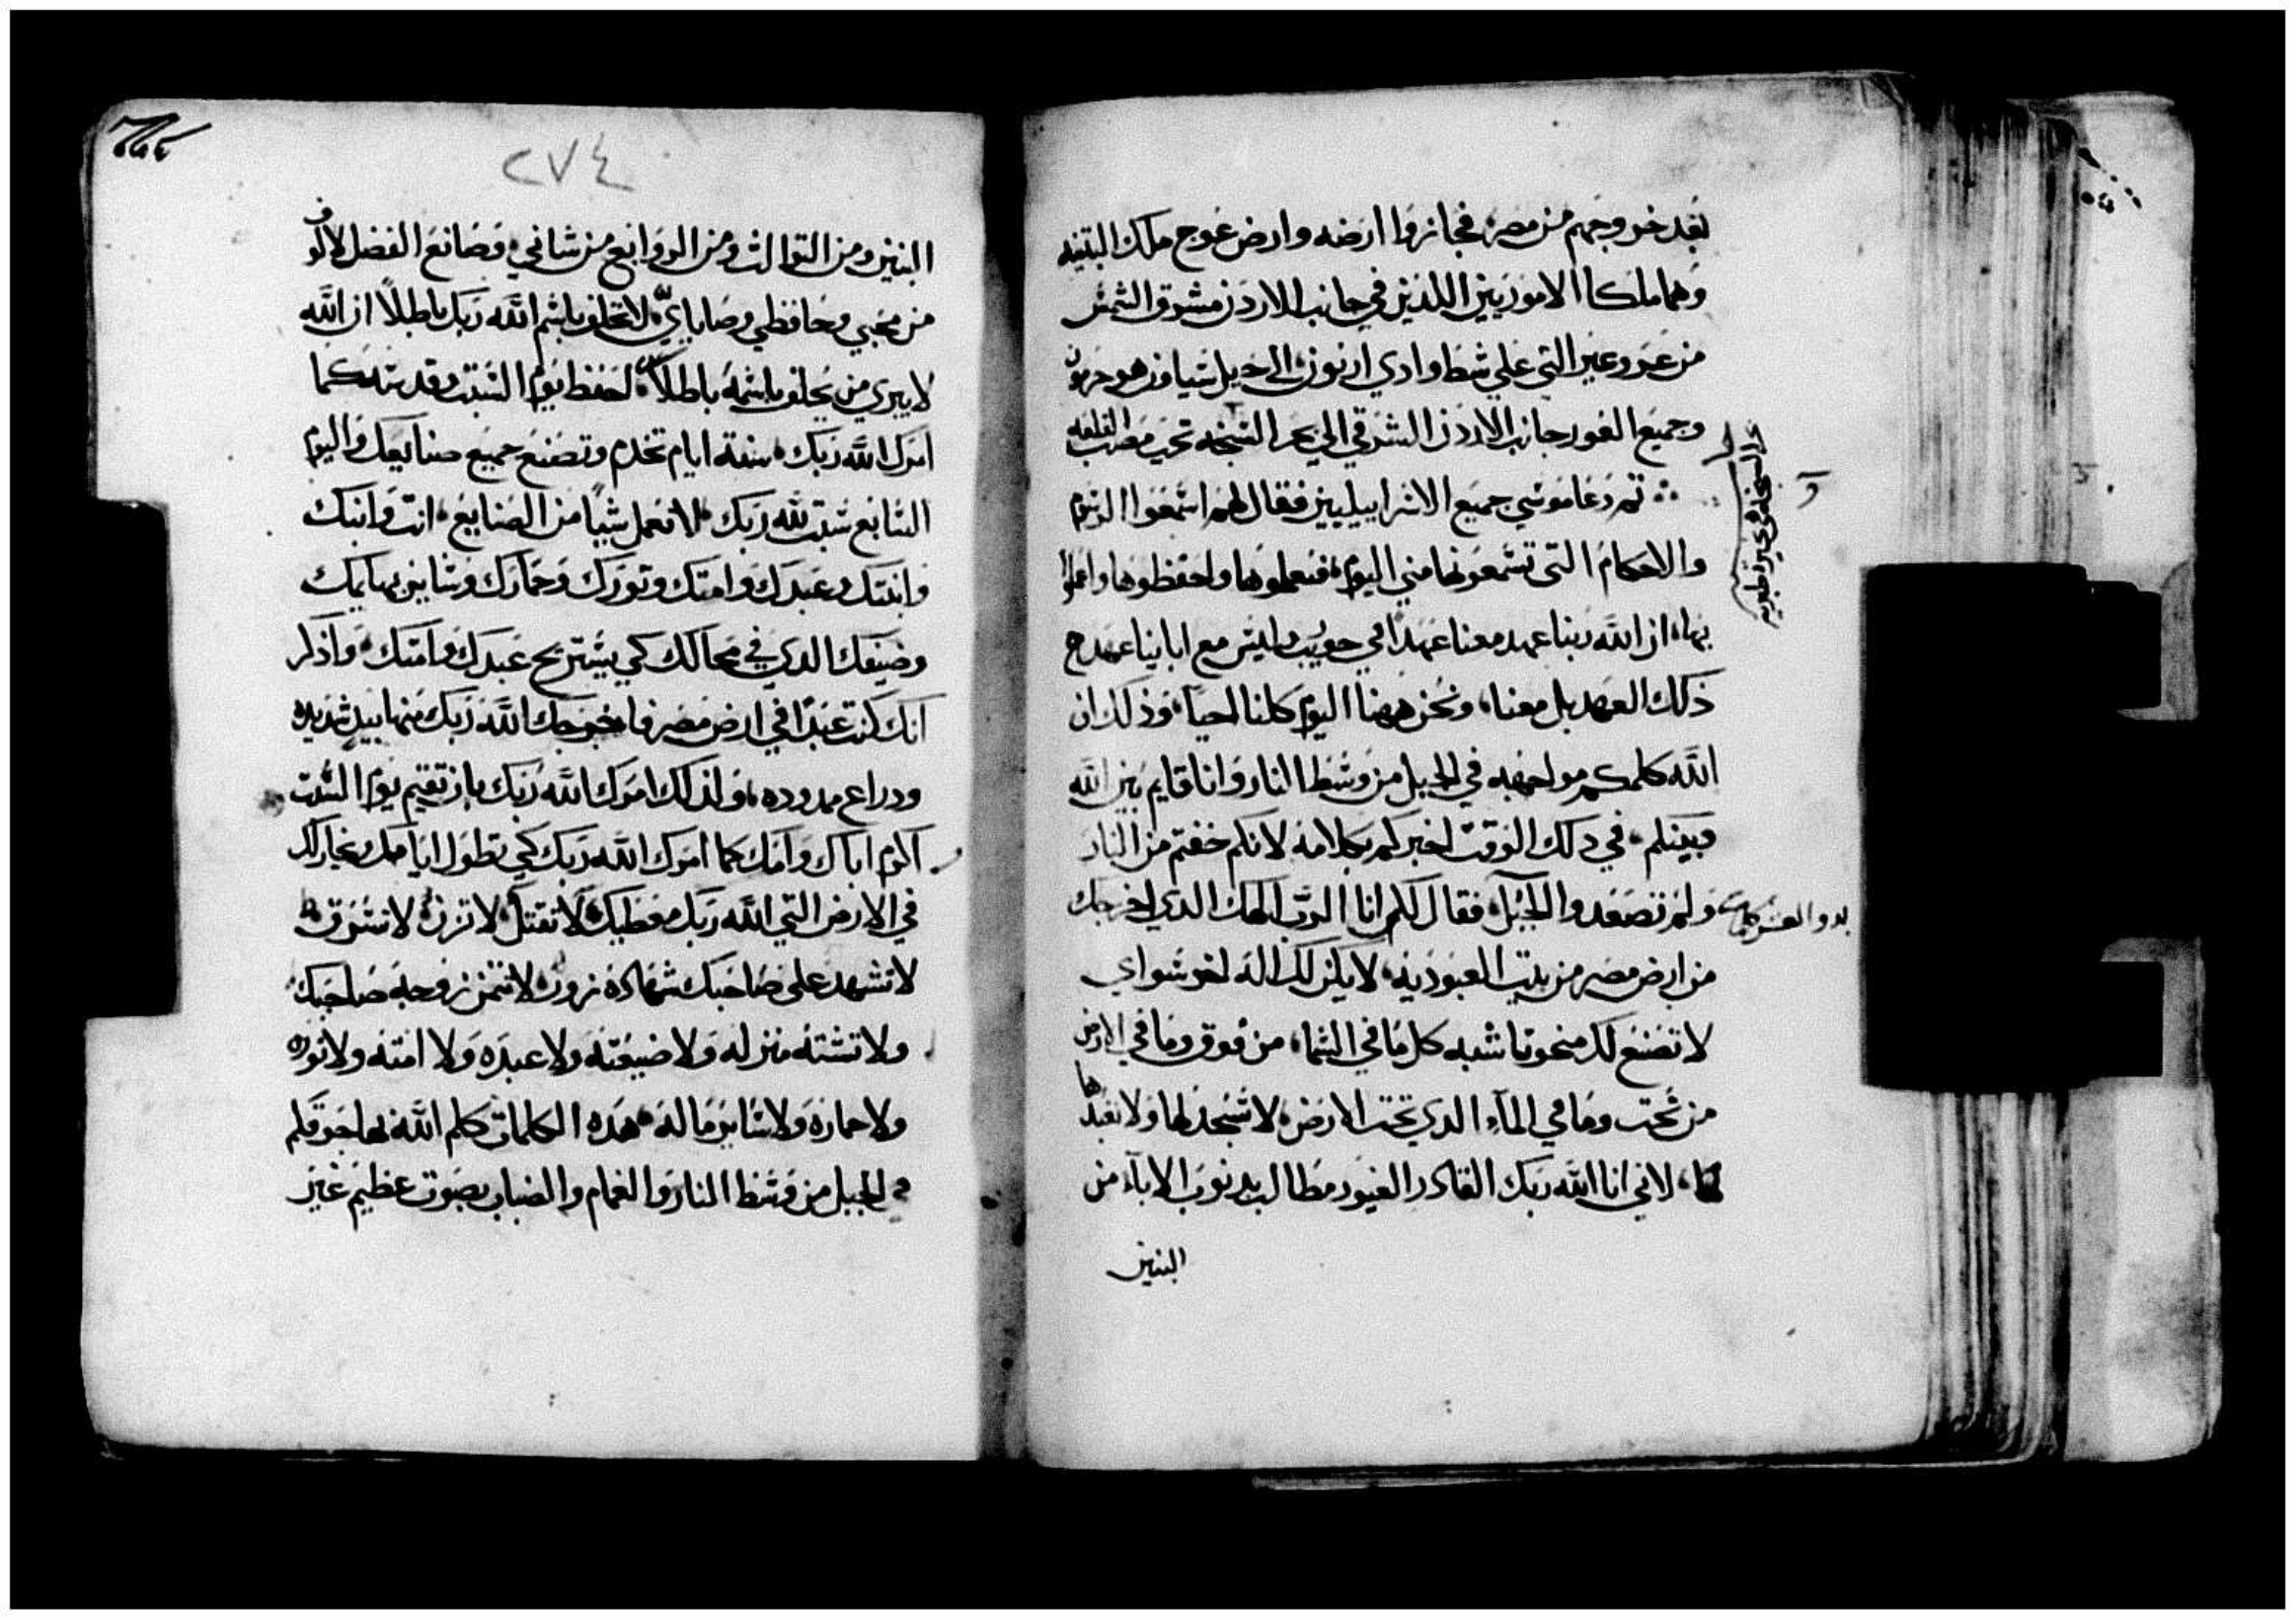 بعد خروجهم من مصر، فجازوا ارضه وارض عوج ملك البتنيه
وهما ملكا الاموريين اللذين في جانب الاردن مشرق الشمس
من عروعير التي علي شط وادي ارنون، الي جبل شياون هو حرمون
وجميع الغور جانب الاردن الشرقي الي بحر السبخه تحت مصب القلعه
ثم دعا موسي جميع الاسراييليين فقال لهم اسمعوا الرسوم
والاحكام التي تسمعونها مني اليوم، فتعلموها واحفظوها واعملوا
بها، ان الله ربنا عهد معنا عهدًا في حوريب وليس مع اباينا عهد
ذلك العهد بل معنا، ونحن ههنا اليوم كلنا احيا، وذلك ان
الله كلمكم مواجهه في الجبل من وسط النار وانا قايم بين الله
وبينكم، في دلك الوقت اخبركم بكلامه لانكم خفتم من النار
ولم تصعدوا الجبل، فقال لكم انا الرب الهك الدي اخرجك
بدو العشر كلمات
من ارض مصر من بيت العبوديه، لا يكن لك اله اخر سواي
لا تصنع لك منحوتا شبه كل ما في السما، من فوق وما في الارض
من تحت وما في المآء الدي تحت الارض، لا تسجد لها ولا تعبدها
لاني انا الله ربك القادر الغيور مطالب بدنوب الابآء من
البنين
٢٧٤
البنين ومن التوالث ومن الروابع من شاني، وصانع الفضل لالوف
من محبي وحافظي وصاياي، لا تحلف باسم الله ربك باطلاً ان الله
لا يبري من يحلف باسمه باطلاً، احفظ يوم السبت وقدسه كما
امرك الله ربك، ستة ايام تخدم وتصنع جميع صنايعك واليوم
السابع سبت لله ربك، لا تعمل شيًا من الصنايع، انت وابنك
وابنتك وعبدك وامتك وتورك وحمارك وساير بهايمك
وضيفك الدي في محالك كي يستريح عبدك وامتك، واذكر
انك كنت عبدًا في ارض مصر فاخرجك الله ربك منها بيد شديده
ودراع ممدوده، ولذلك امرك الله ربك بان تقيم يوم السبت
اكرم اباك وامك كما امرك الله ربك كي تطول ايامك ويخار لك
في الارض التي الله ربك معطيك، لا تقتل، لا تزن، لا تسرق
لا تشهد على صاحبك شهادة زور، لا تتمن زوجة صاحبك
ولا تشته منزله ولا ضيعته ولا عبده ولا امته ولا توره
ولا حماره ولا ساير ما له، هده الكلمات كلم الله بها جوقكم
في الجبل من وسط النار والغمام والضباب بصوت عظيم غير